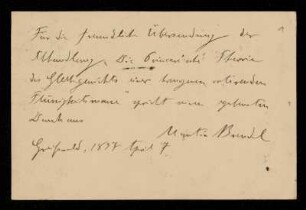 Für die freundliche Übersendung der
Abhandlung „Die Poincaré'sche Theorie
des Gleichgewichts einer homogenen rotirenden
Flüssigkeitsmasse" spricht seinen
Dank aus
Martin Brendel
Greifswald, 1897 Sept 7.